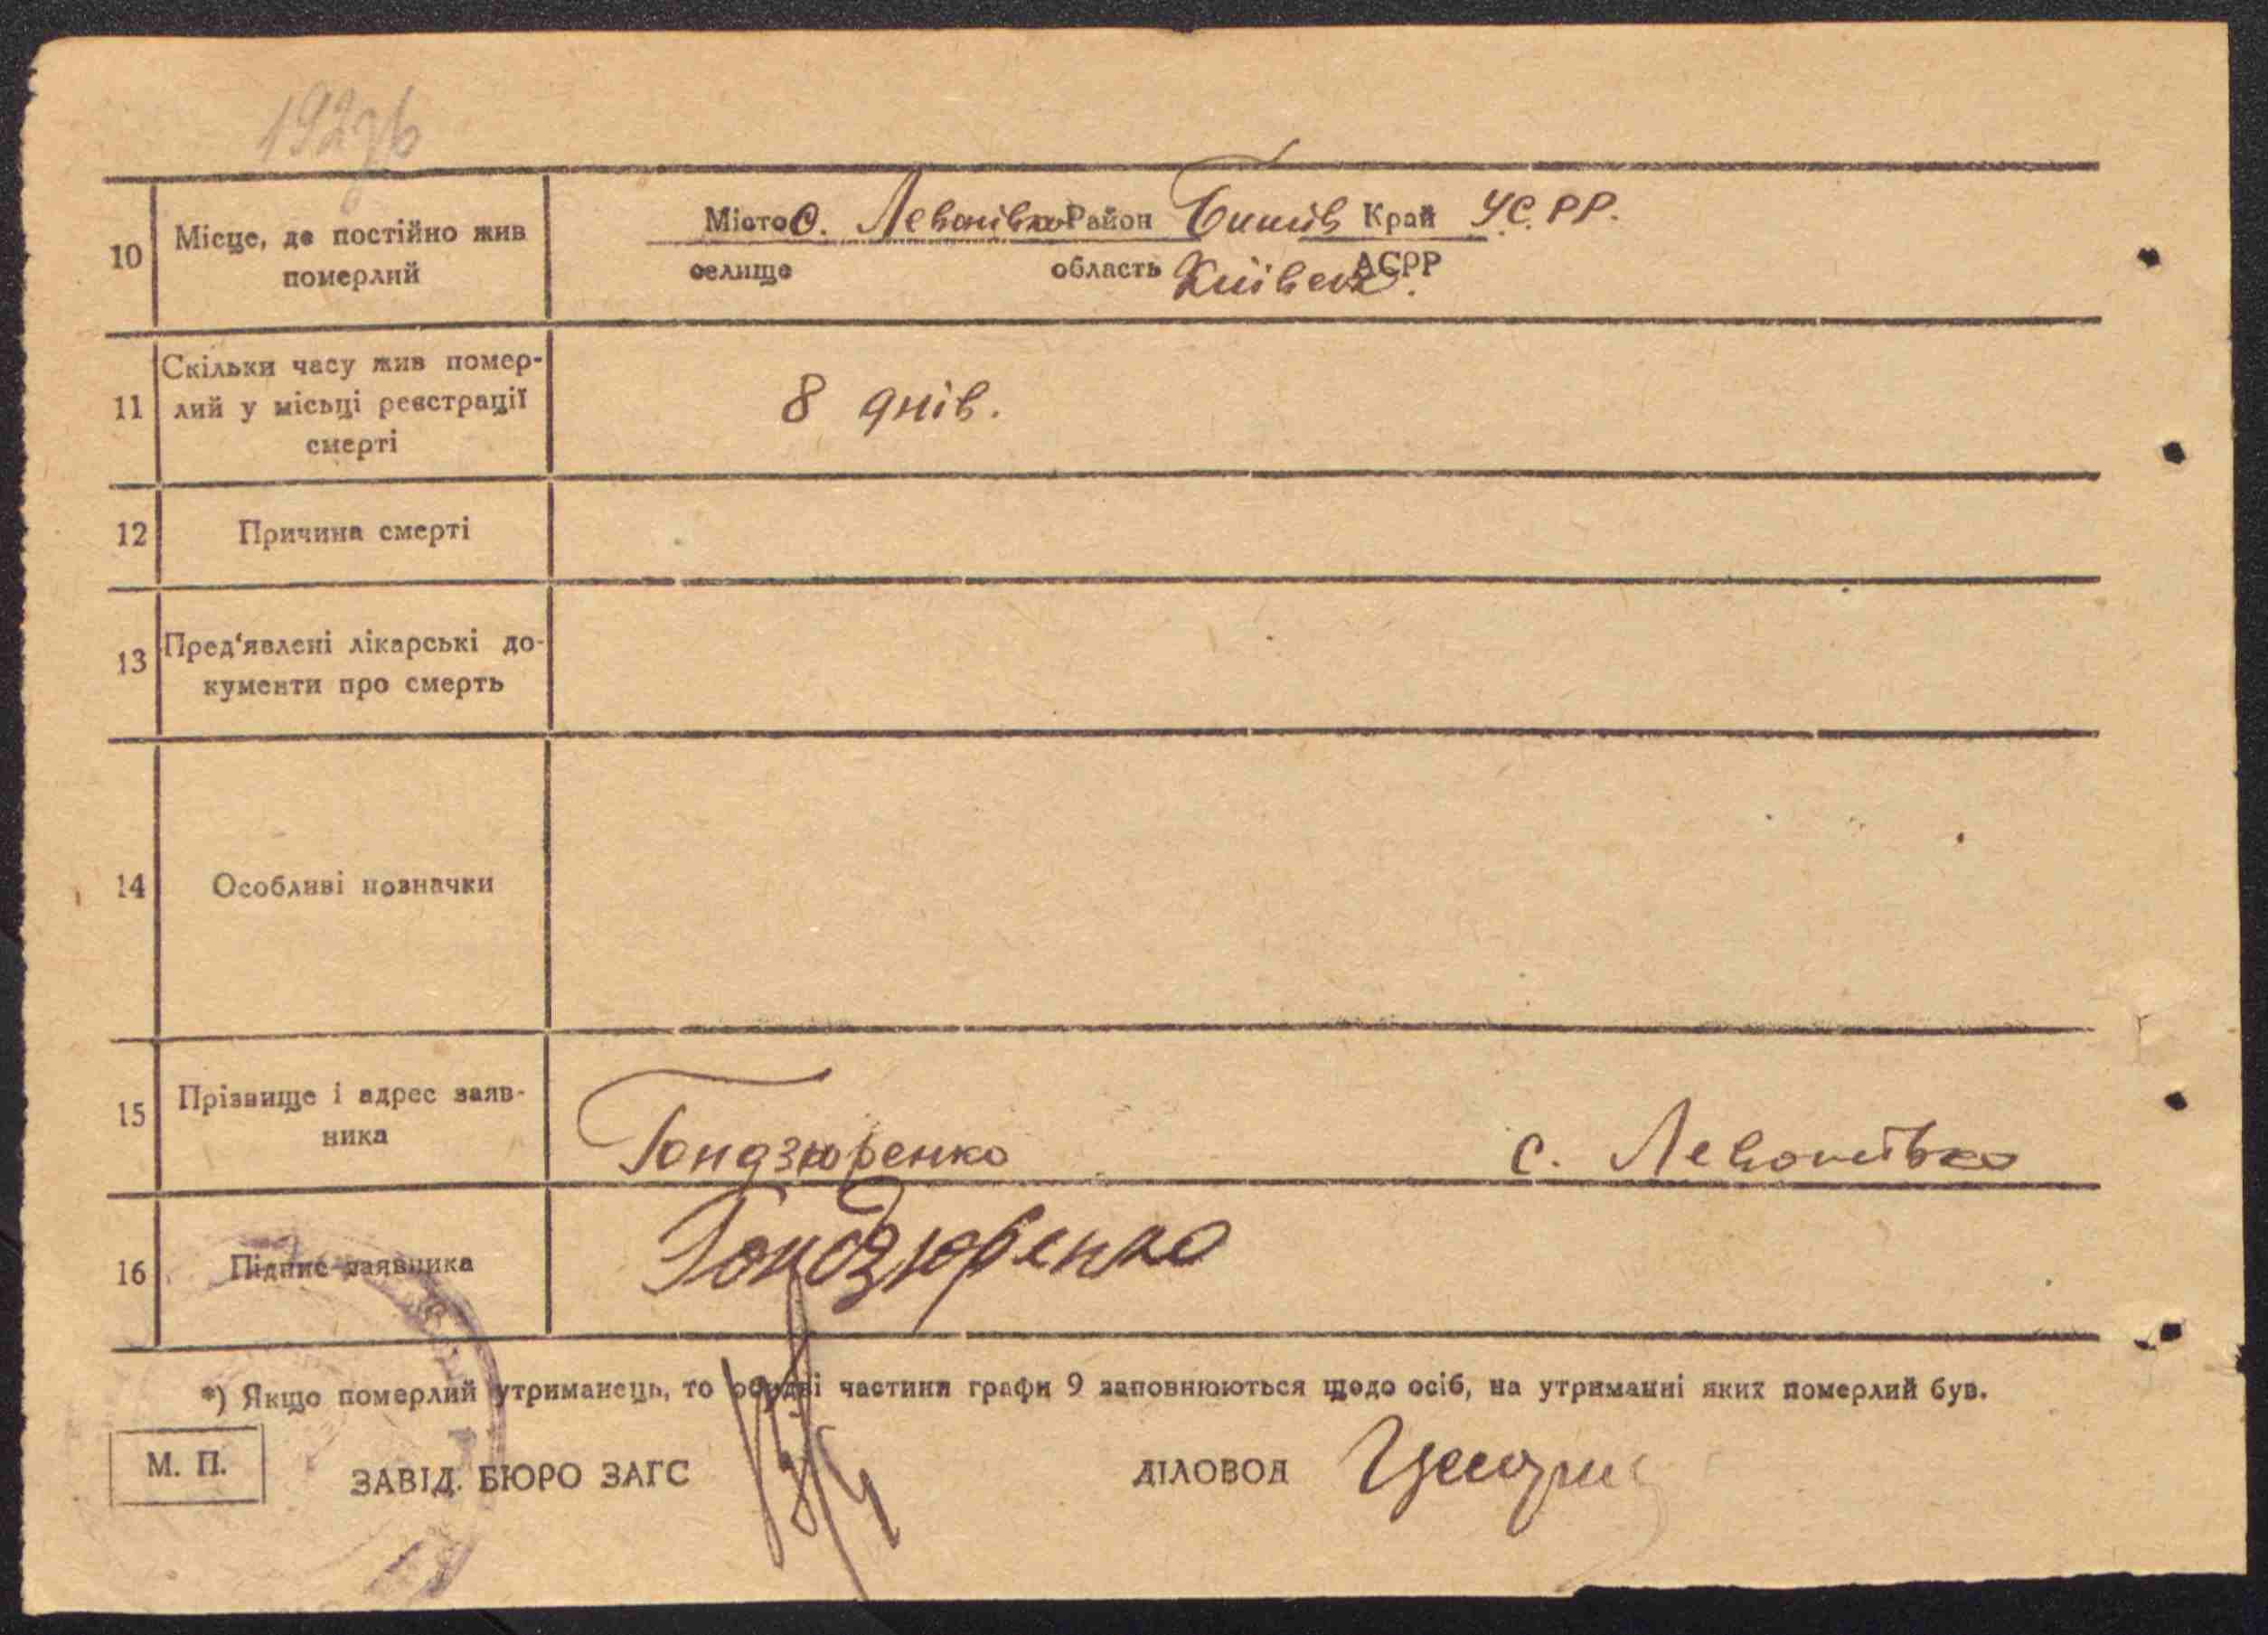 192зв
10 Місце, де постійно жив Місто с. Левонівка Район Край УС.РР.
померлий селище область Київськ. АСРР
Скільки часу жив помер-
11 лий у місьці реєстрації 8 днів.
смерті
12 Причина смерті
13 Пред'явлені лікарські до-
кументи про смерть
14 Особливі позначки
15 Прізвище і адрес заяв- Гондзюренко с. Левонівка
ника
16 Підпис заявника Гондзюренко
*) Якщо померлий утриманець, то обидві частини графи 9 заповнюються щодо осіб, на утриманні яких померлий був.
М. П. ЗАВІД. БЮРО ЗАГС ДІЛОВОД